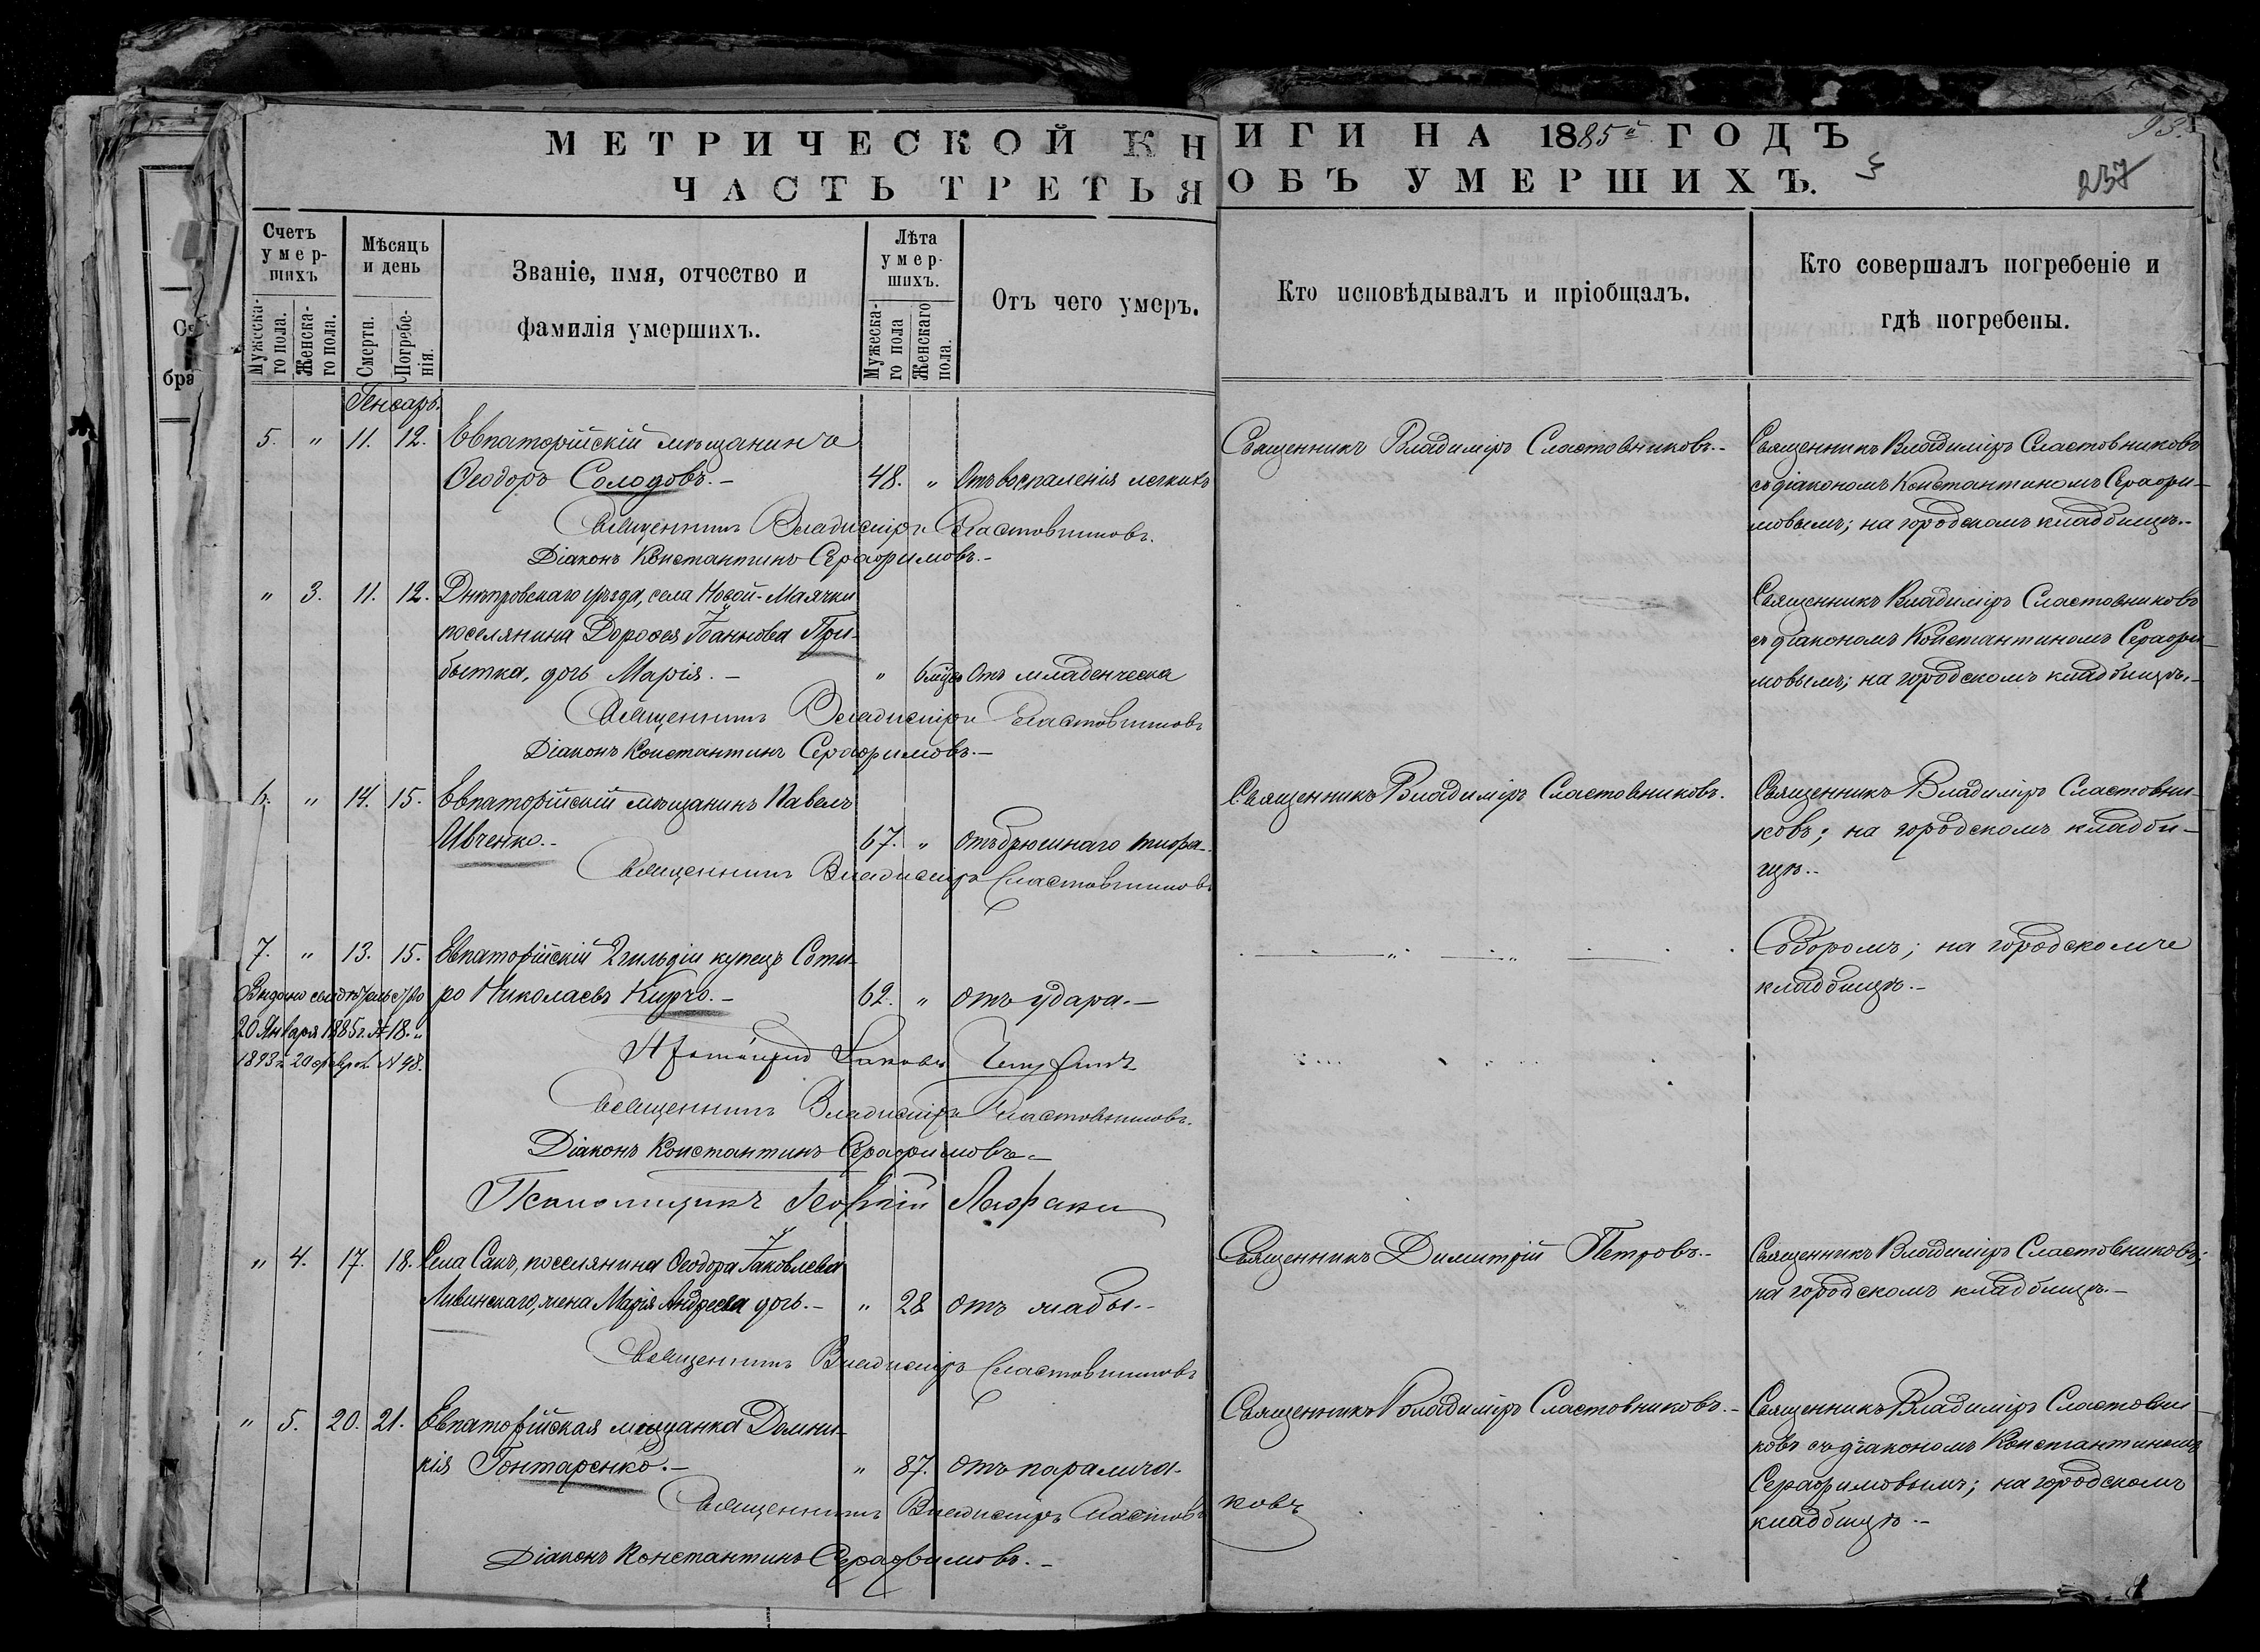 МЕТРИЧЕСКОЙ КНИГИ НА 1885й ГОДЪ
93.
ЧАСТЬ ТРЕТЬЯ ОБЪ УМЕРШИХЪ.
237
Счетъ умер-шихъ
Мѣсяцъ и день
Званіе, имя, отчество и фамилія умершихъ.
Лѣта умер-шихъ.
Отъ чего умеръ.
Кто исповѣдывалъ и пріобщалъ.
Кто совершалъ погребеніе и гдѣ погребены.
Мужеска-го пола.
Женска-го пола.
Смерти.
Погребе-нія.
Мужеска-го пола
Женскаго пола.
Генварь.
5. " 11. 12. Евпаторійскій мѣщанинъ
Ѳеодоръ Солодовъ.- 48. " Отъ воспаленія легкихъ
Священникъ Владиміръ Сластовниковъ.-
Священникъ Владиміръ Сластовниковъ
съ діакономъ Константиномъ Серафи-
мовымъ; на городскомъ кладбищѣ.-
Священникъ Владиміръ Сластовниковъ.
Діаконъ Константинъ Серафимовъ.-
" 3. 11. 12. Днѣпровскаго уѣзда, села Новой-Маячки
поселянина Дороѳея Іоаннова При-
бытка, дочь Марія.- " 6 мѣс. Отъ младенческа
Священникъ Владиміръ Сластовниковъ
съ діакономъ Константиномъ Серафи-
мовымъ; на городскомъ кладбищѣ.-
Священникъ Владиміръ Сластовниковъ
Діаконъ Константинъ Серафимовъ.-
6. " 14. 15. Евпаторійскій мѣщанинъ Павелъ
Ивченко.- 67. " отъ брюшнаго тифа.
Священникъ Владиміръ Сластовниковъ.
Священникъ Владиміръ Сластовни-
ковъ; на городскомъ кладби-
щѣ.-
Священникъ Владиміръ Сластовниковъ
7. " 13. 15. Евпаторійскій 2 гильдіи купецъ Соти-
ро Николаевъ Кирчо.- 62. " отъ удара.-
Соборомъ; на городскомъ
кладбищѣ.-
Выдано свидѣтельство
20 Января 1885 г. № 18.
1893 г. 20 февр. № 48.
Протоіерей Іаковъ
Священникъ Владиміръ Сластовниковъ.
Діаконъ Константинъ Серафимовъ.-
Псаломщикъ Георгій
" 4. 17. 18. Села Сакъ, поселянина Ѳеодора Іаковлева
Ливинскаго, жена Марія Андреева дочь.- " 28 отъ жабы.-
Священникъ Димитрій Петровъ.-
Священникъ Владиміръ Сластовниковъ;
на городскомъ кладбищѣ.-
Священникъ Владиміръ Сластовниковъ
" 5. 20. 21. Евпаторійская мѣщанка Домни-
кія Гонтаренко.- " 87. отъ паралича.
Священникъ Владиміръ Сластовниковъ.-
Священникъ Владиміръ Сластовни-
ковъ съ діакономъ Константиномъ
Серафимовымъ; на городскомъ
кладбищѣ.-
Священникъ Владиміръ Сластовниковъ
Діаконъ Константинъ Серафимовъ.-